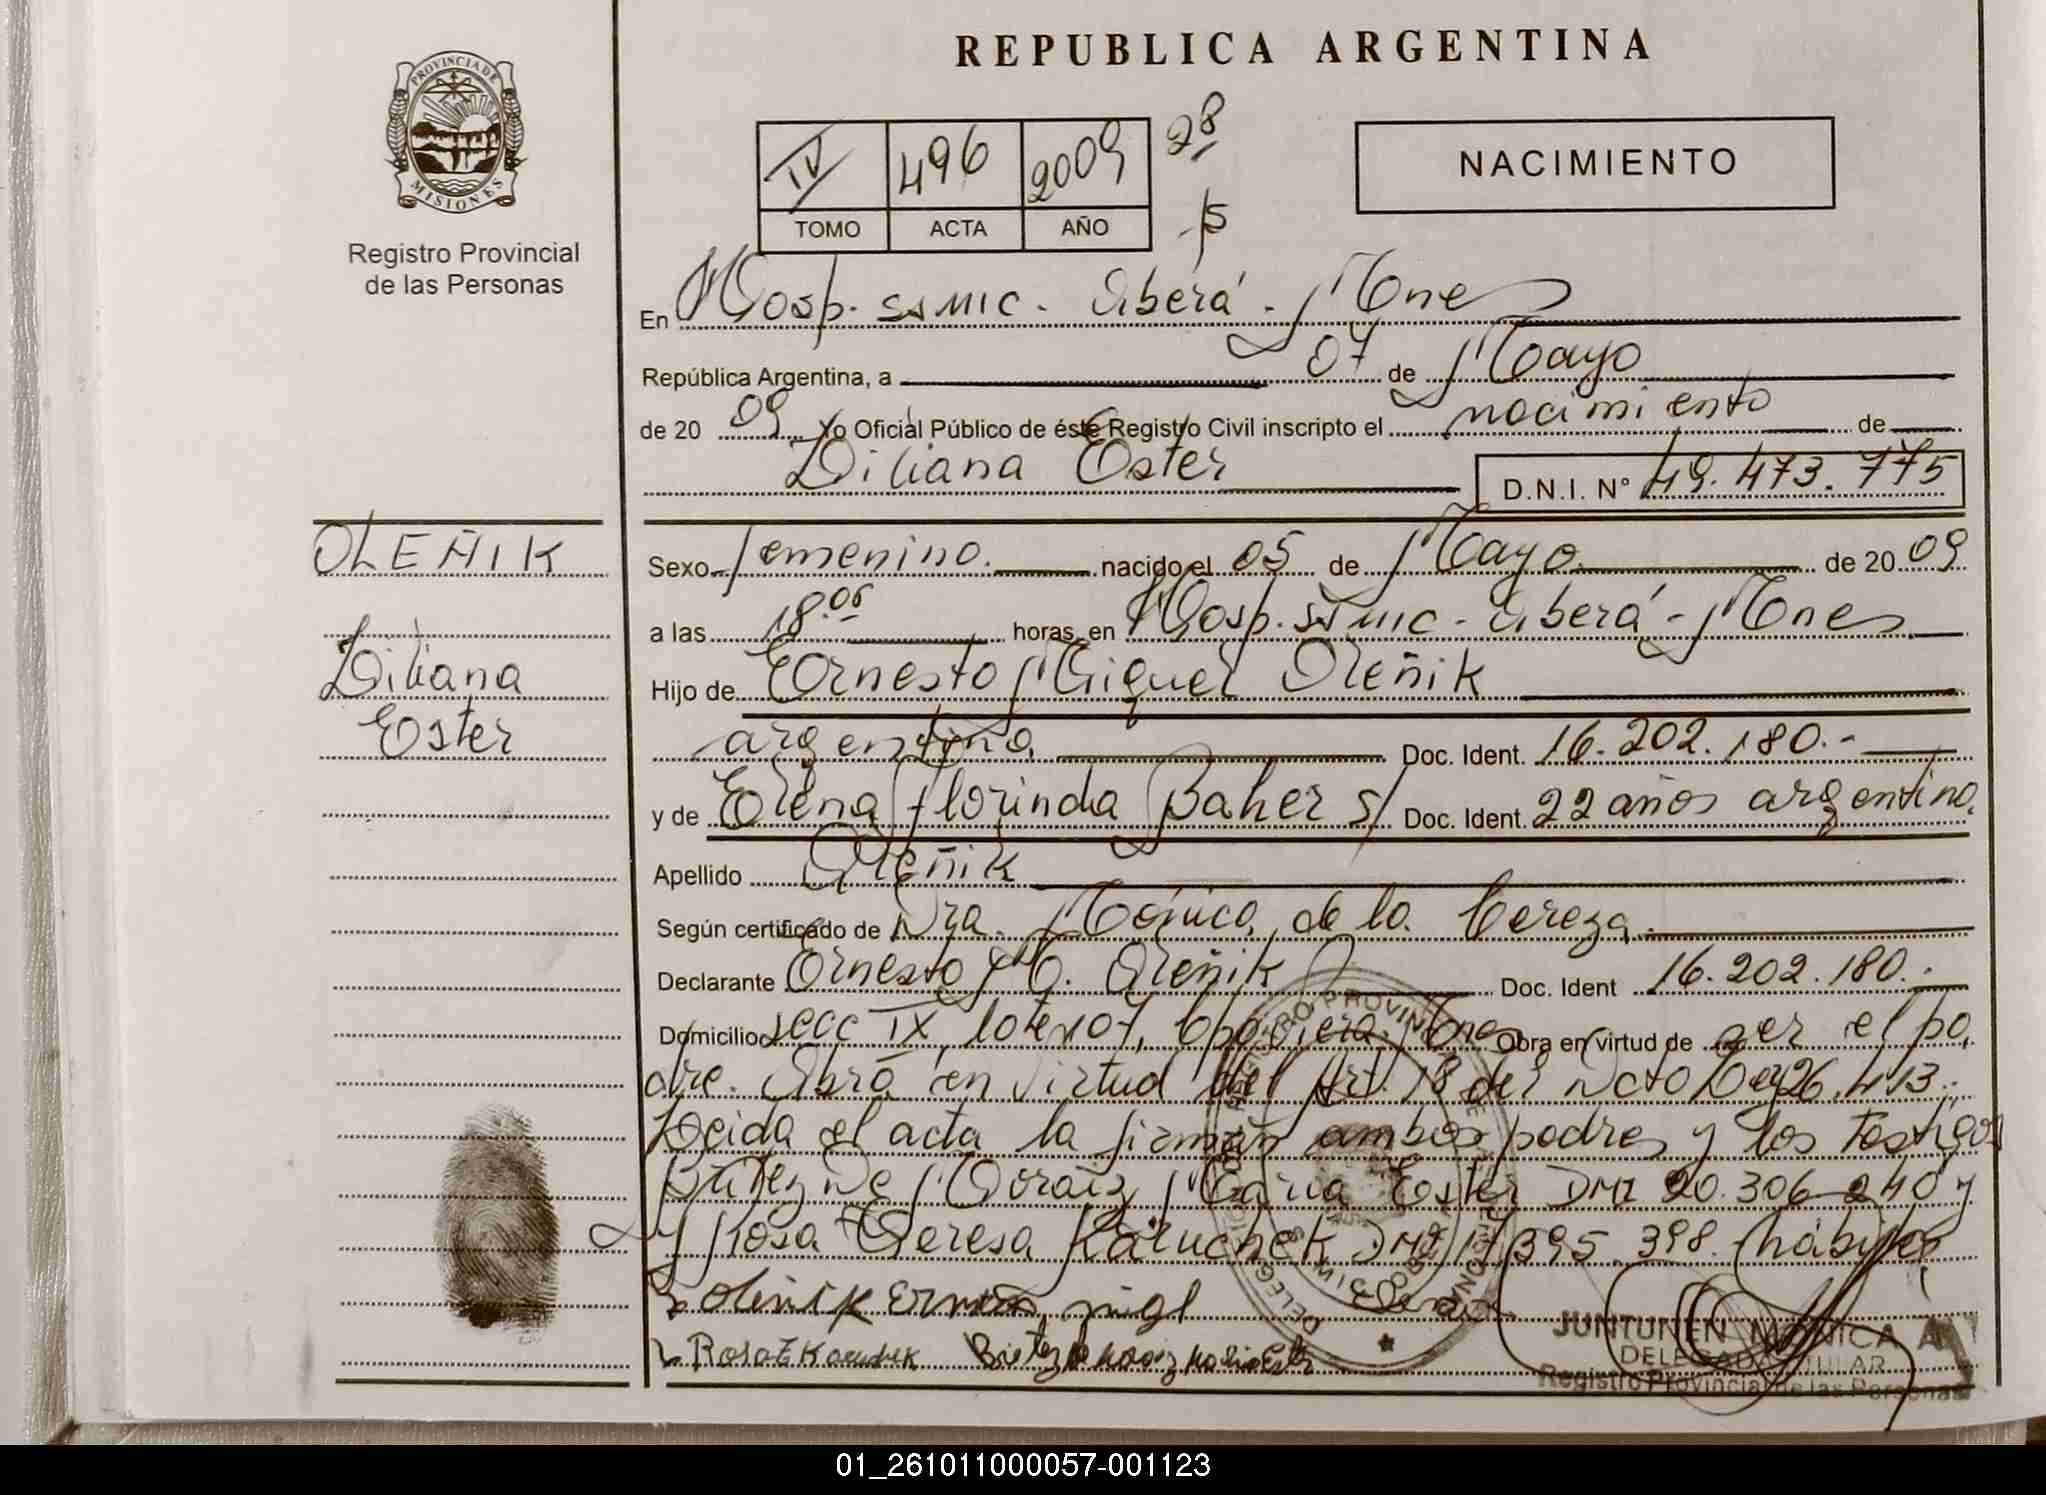 REPUBLICA ARGENTINA
PROVINCIA DE
MISIONES
Registro Provincial
de las Personas
IV 496 2009 28
TOMO ACTA AÑO 15
NACIMIENTO
En Hosp. SSMIC. Oberá - Mnes
República Argentina, a 07 de Mayo
de 20 09 Yo Oficial Público de éste Registro Civil inscripto el nacimiento de
Liliana Ester D.N.I. N° 49.473.775
OLEÑIK
Liliana
Ester
Sexo femenino. nacido el 05 de Mayo de 20 09
a las 18.05 horas, en Hosp. SSMIC - Oberá - Mnes
Hijo de Ernesto Miguel Oleñik
argentino Doc. Ident. 16.202.180.-
y de Elena Florinda Baher S/ Doc. Ident. 22 años argentina.
Apellido Oleñik
Según certificado de Dra. Mónica de la Cereza
Declarante Ernesto M. Oleñik Doc. Ident 16.202.180.-
Domicilio secc IX, lote 107, Mnes Obra en virtud de ser el pa
dre. Obra en virtud del Art. 18 del Dcto Ley 26.413.
Leida el acta la firman ambos padres y los testigos
De Moraiz Maria Ester DNI 20.306.240 y
Rosa Teresa Karuchek DNI 17.395.398. hábiles
Oleñik
Elena
Rosa T Karuchek
JUNTUNEN MONICA A
DELEGADA TITULAR
Registro Provincial de las Personas
01_261011000057-001123